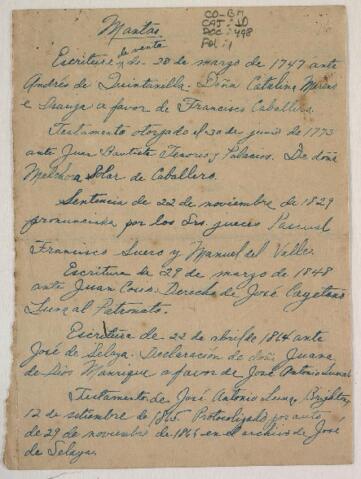 Mantas.
CO-BM
CAJ: 10
DOC: 498
FOL: 1
de venta
Escritura de 28 de marzo de 1747 ante
Andrés de Quintanilla. Doña Catalina
e Isauza a favor de Francisco Caballero.
Testamento otorgado el 30 de junio de 1773
ante Juan Bautista Tenorio y Palacios. De doña
Melchoa Solar de Caballero.
Sentencia de 22 de noviembre de 1829
pronunciada por los Srs. jueces Pascual
Francisco Suero y Manuel del Valle.
Escritura de 29 de marzo de 1848
ante Juan Cosio. Derecho de José Cayetano
Luna al Patronato.
Escritura de 22 de abril de 1864 ante
José de Selaya. Declaración de doña Juana
de Dios Manrique a favor de José Antonio Luna.
Testamento de José Antonio Luna
12 de setiembre de 1865. Protocolizado por auto
de 29 de noviembre de 1866 en el archivo de José
de Selaya.